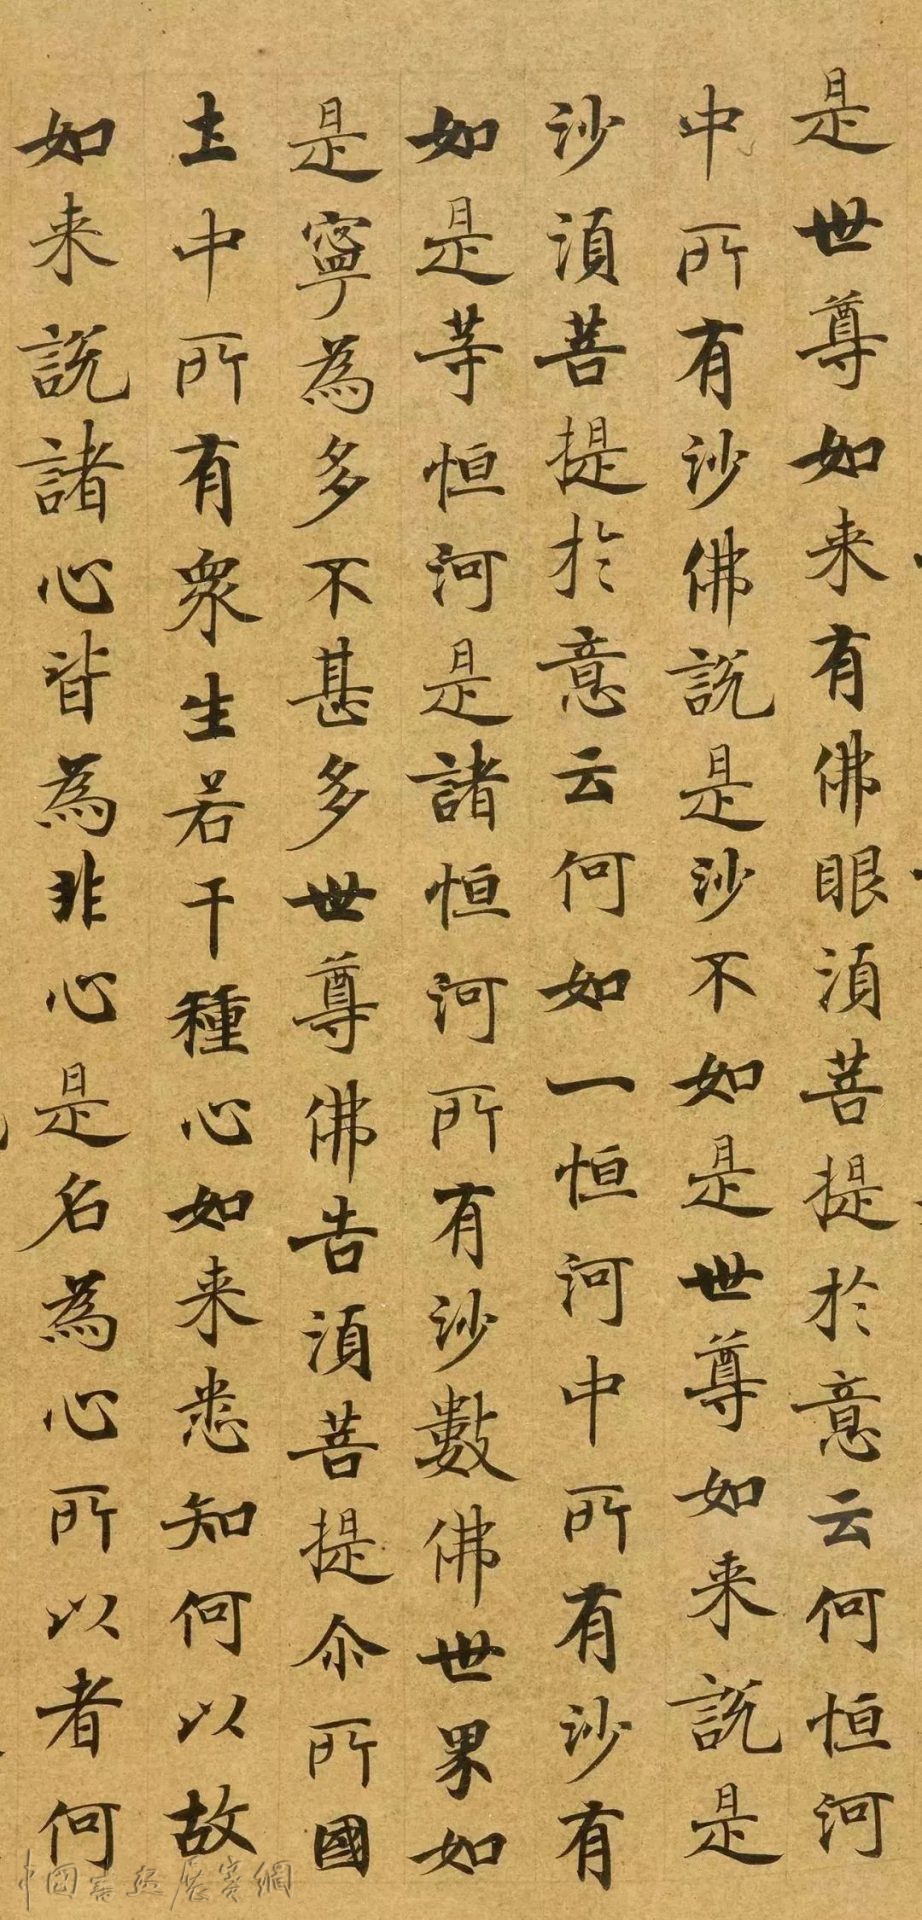 是世尊如来有佛眼湏菩提於意云何恒河
中所有沙佛説是沙不如是世尊如来説是
沙湏菩提於意云何如一恒河中所有沙有
如是等恒河是諸恒河所有沙數佛世界如
是寧為多不甚多世尊佛告湏菩提尒所國
土中所有衆生若干種心如来悉知何以故
如来説諸心皆為非心是名為心所以者何
中國書法展賽網